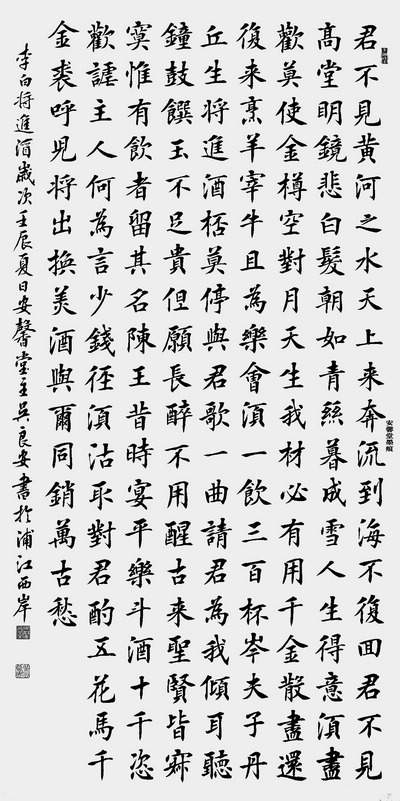 君不見黃河之水天上来奔流到海不復回君不見
高堂明鏡悲白髮朝如青絲暮成雪人生得意須盡
歡莫使金樽空對月天生我材必有用千金散盡還
復来烹羊宰牛且為樂會須一飲三百杯岑夫子丹
丘生将進酒桮莫停與君歌一曲請君為我傾耳聽
鐘鼓饌玉不足貴但願長醉不用醒古来聖賢皆寂
寞惟有飲者留其名陳王昔時宴平樂斗酒十千恣
歡謔主人何為言少錢徑須沽取對君酌五花馬千
金裘呼兒将出換美酒與爾同銷萬古愁
李白将進酒歲次壬辰夏日安馨堂主吳良安書於浦江西岸
安馨堂墨痕